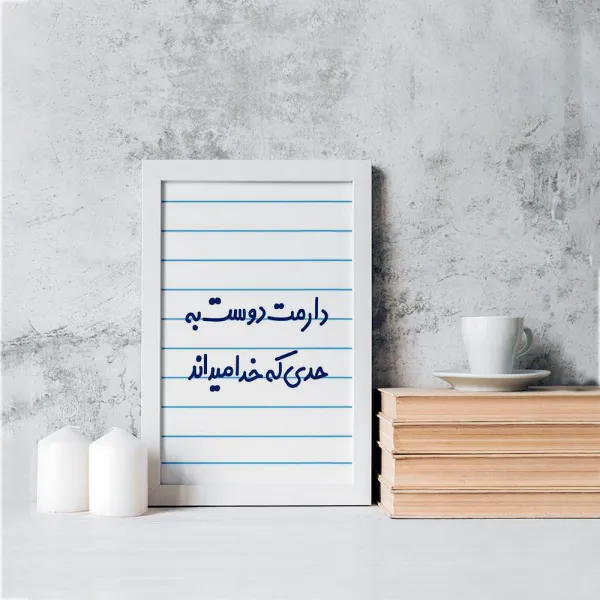 دارمت دوست به
حدی که خدا میداند